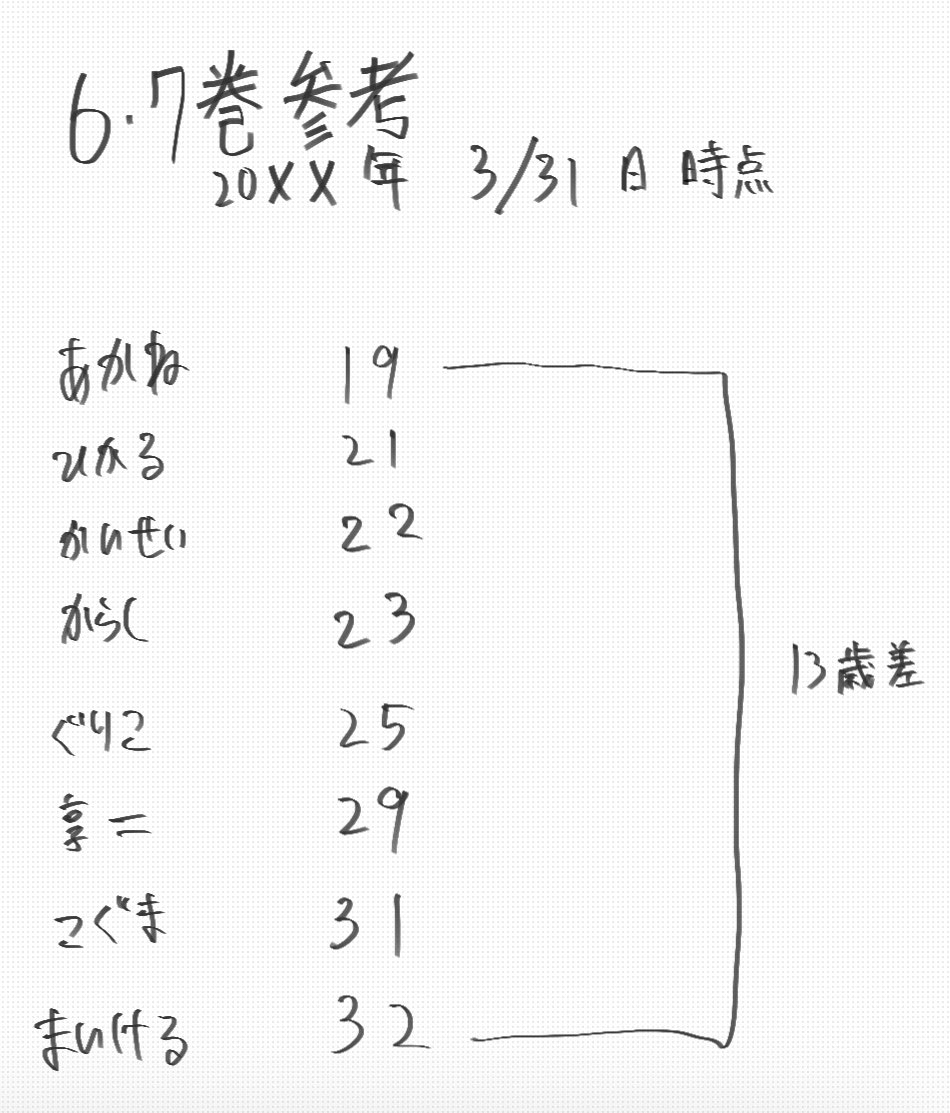 6.7巻参考
20XX年 3/31日時点
あかね 19
ひかる 21
かいせい 22
からし 23
13歳差
ぐりこ 25
享二 29
こぐま 31
まいける 32